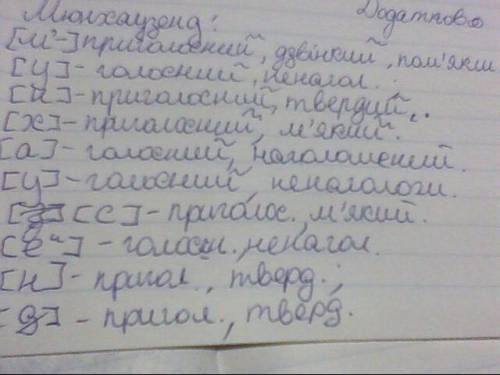 Мюнхаузенд: Додатково
[м'-] приголосний, дзвінкий, пом'якш
[у] - голосний, ненагол.
[н] - приголосний, твердий,.
[х] - приголосний, м'який.
[а] - голосний, наголошений.
[у] - голосний, ненаголош.
[с] - приголос., м'який.
[еи] - голосн., ненагол.
[н] - пригол., тверд.;
[д] - пригол., тверд.